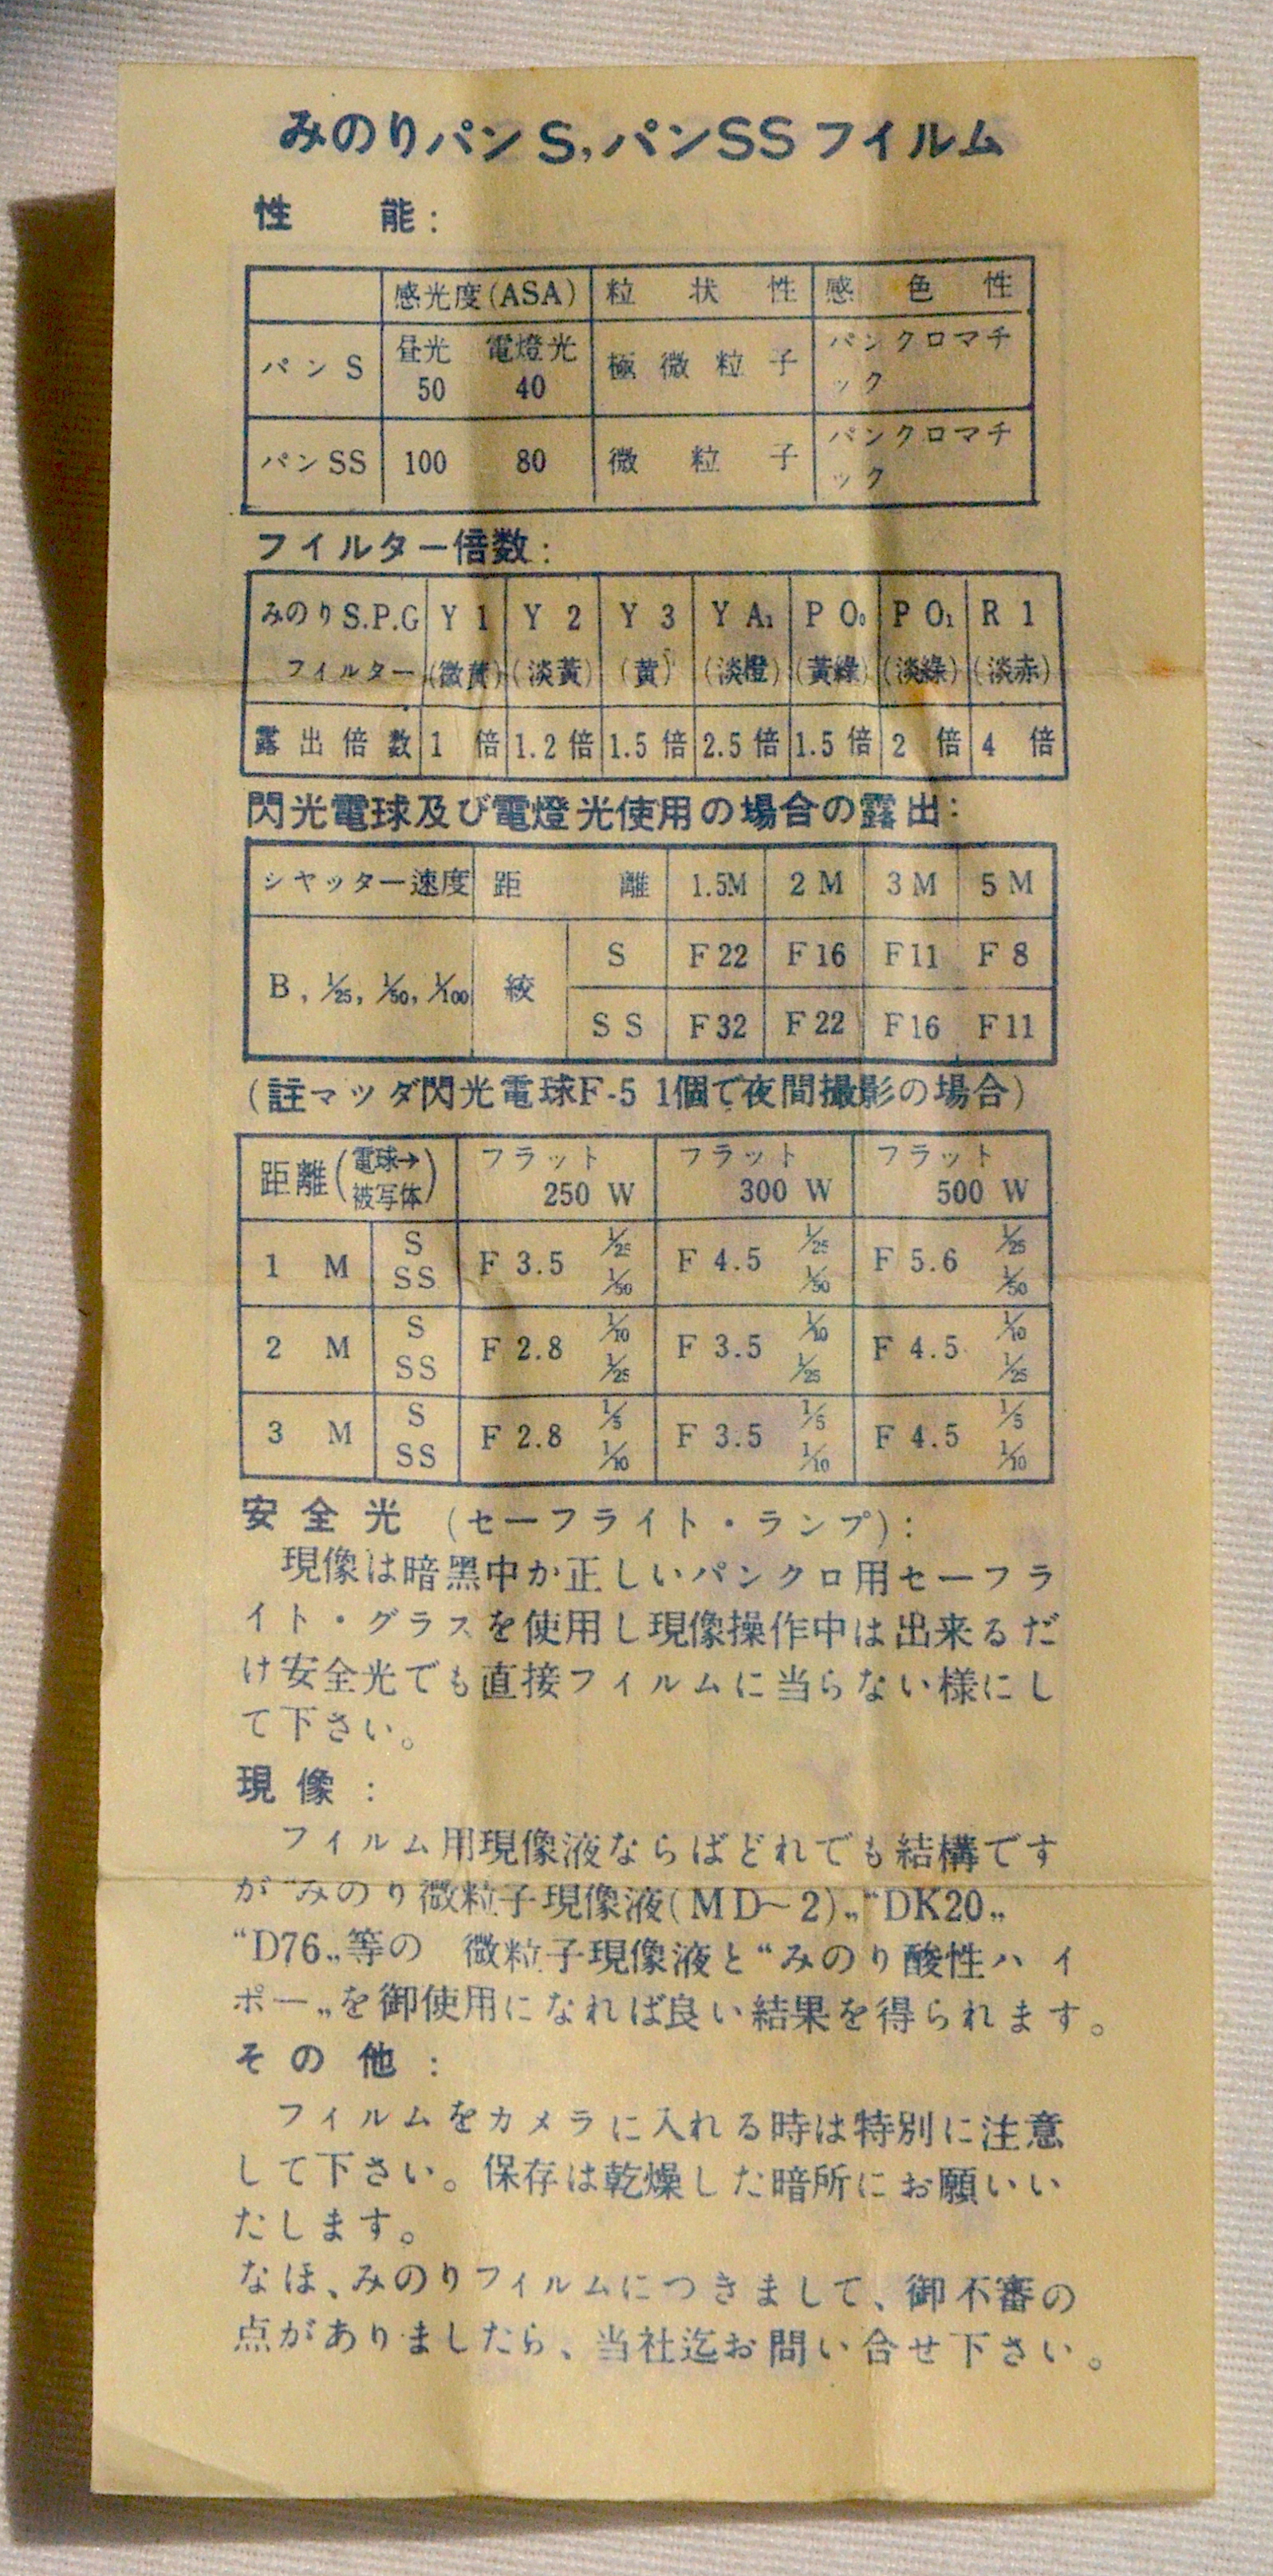 みのりパンS,パンSSフイルム
性能:
感光度(ASA) 粒状性 感色性
パンS 昼光 50 電燈光 40 極微粒子 パンクロマチック
パンSS 100 80 微粒子 パンクロマチック
フイルター倍数:
みのりS.P.G Y 1 Y 2 Y 3 Y A₁ P O₀ P O₁ R 1
フイルター (微黄) (淡黄) (黄) (淡橙) (黄緑) (淡緑) (淡赤)
露出倍数 1倍 1.2倍 1.5倍 2.5倍 1.5倍 2倍 4倍
閃光電球及び電燈光使用の場合の露出:
シヤッター速度 距離 1.5M 2M 3M 5M
B, 1/25, 1/50, 1/100 絞 S F22 F16 F11 F8
SS F32 F22 F16 F11
(註マツダ閃光電球F-5 1個で夜間撮影の場合)
距離(電球→被写体) フラット 250 W フラット 300 W フラット 500 W
1 M S SS F 3.5 1/25 1/50 F 4.5 1/25 1/50 F 5.6 1/25 1/50
2 M S SS F 2.8 1/10 1/25 F 3.5 1/10 1/25 F 4.5 1/10 1/25
3 M S SS F 2.8 1/5 1/10 F 3.5 1/5 1/10 F 4.5 1/5 1/10
安全光 (セーフライト・ランプ):
現像は暗黒中か正しいパンクロ用セーフラ
イト・グラスを使用し現像操作中は出来るだ
け安全光でも直接フィルムに当らない様にし
て下さい。
現像:
フィルム用現像液ならばどれでも結構です
が“みのり微粒子現像液(MD~2)„“DK20„
“D76„等の 微粒子現像液と“みのり酸性ハイ
ポー„を御使用になれば良い結果を得られます。
その他:
フィルムをカメラに入れる時は特別に注意
して下さい。保存は乾燥した暗所にお願いい
たします。
なほ、みのりフィルムにつきまして、御不審の
点がありましたら、当社迄お問い合せ下さい。